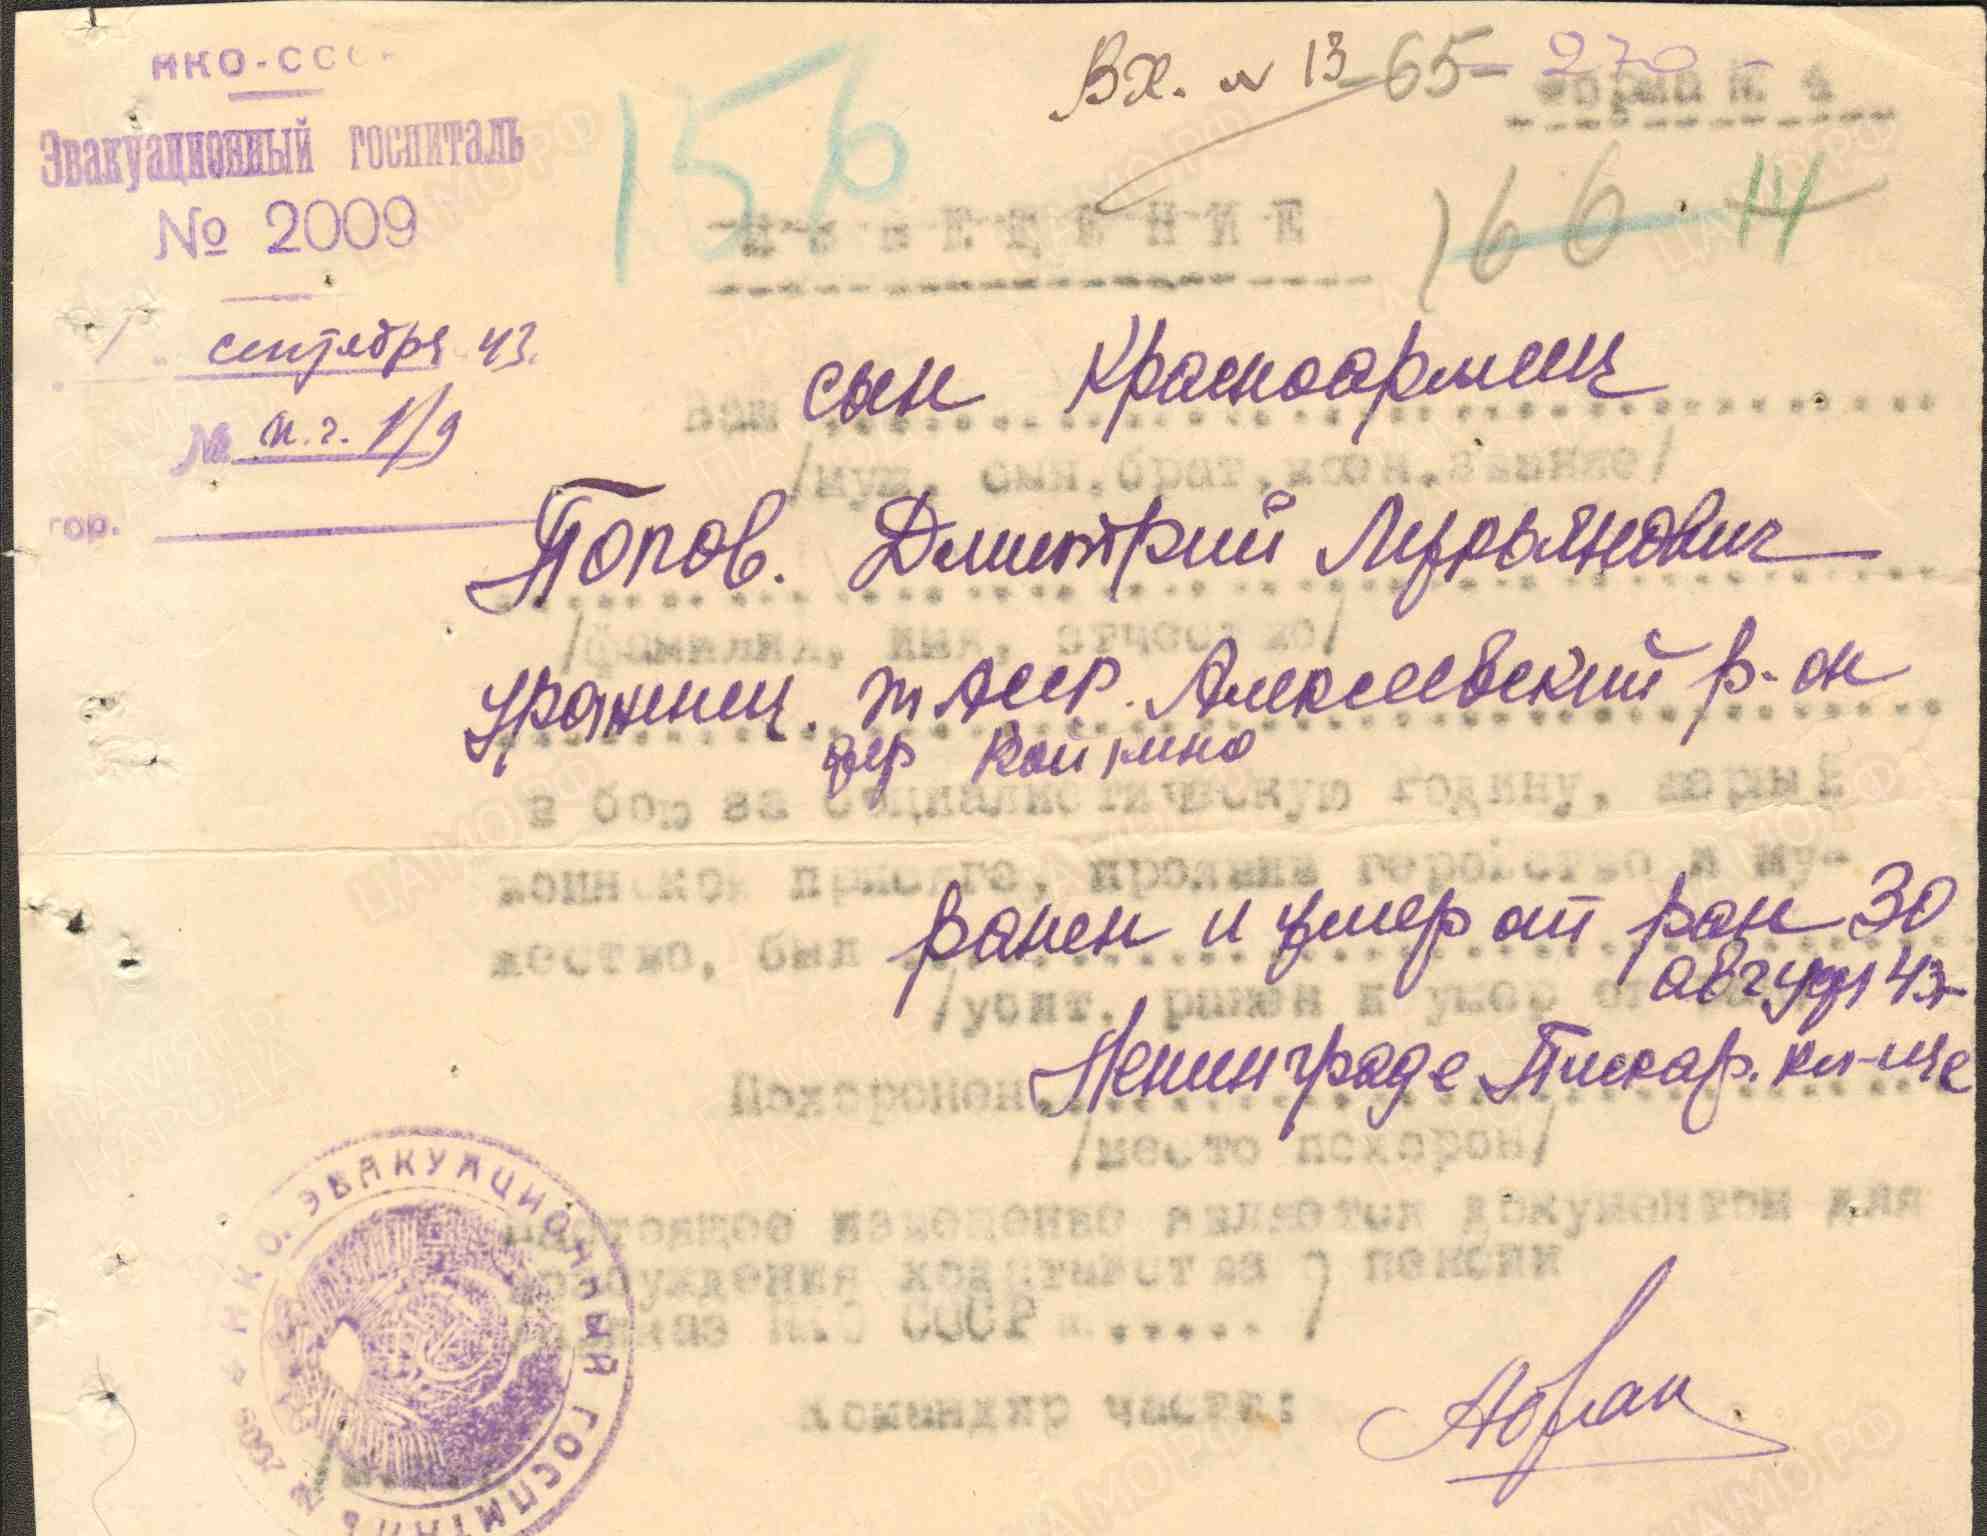 НКО-ССС
Вх. № 13-65-270
Форма № 4
Эвакуационный госпиталь
№ 2009
156
ИЗВЕЩЕНИЕ
166
14
1 сентября 43.
№ п.г. 1/9
гор.
Ваш сын Красноармеец
/муж, сын, брат, воен. звание/
Попов. Дмитрий Лукьянович
/фамилия, имя, отчество/
Уроженец. т АССР. Алексеевский р-он
дер Войкино
в бою за социалистическую родину, верный
воинской присяге, проявив геройство и му-
жество, был ранен и умер от ран 30
август 43
/убит, ранен и умер от ран/
Похоронен Ленинграде Пискар. кл-ще
/место похорон/
Настоящее извещение является документом для
возбуждения ходатайства о пенсии
/приказ НКО СССР № ...../
Командир части:
НКО. ЭВАКУАЦИОННЫЙ ГОСПИТАЛЬ № 2009